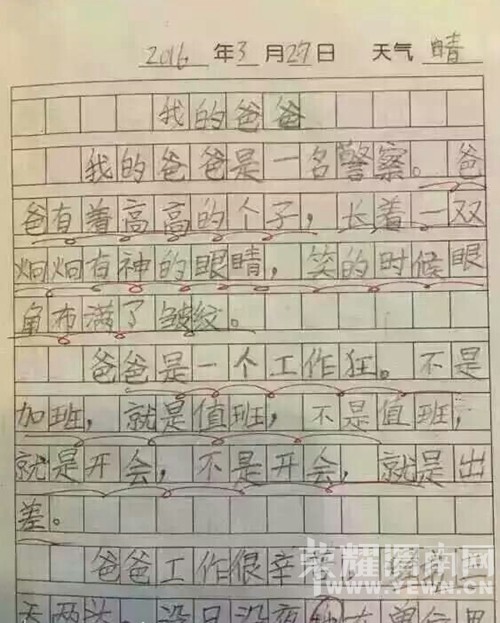 2016年3月27日 天气 晴
我的爸爸
我的爸爸是一名警察。爸
爸有着高高的个子，长着一双
炯炯有神的眼睛，笑的时候眼
角布满了皱纹。
爸爸是一个工作狂。不是
加班，就是值班，不是值班，
就是开会，不是开会，就是出
差。
爸爸工作很辛苦，
天两
YEWN.COM